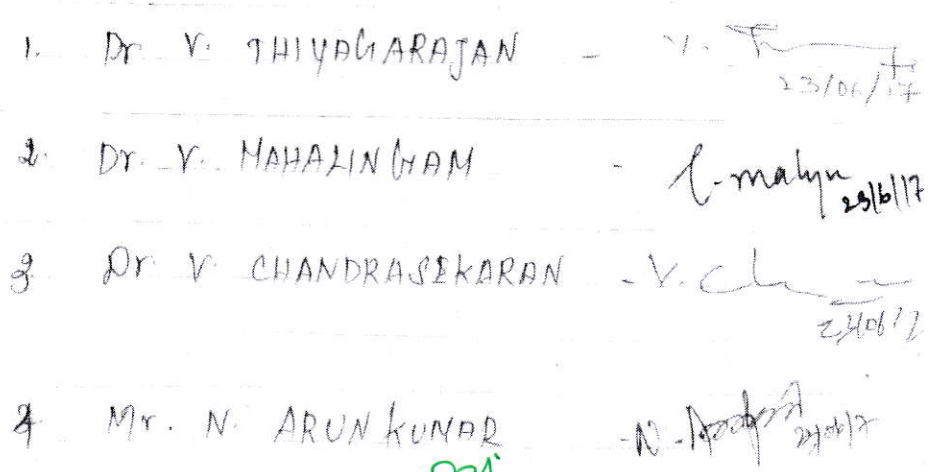 1. Dr. V. THIYAGARAJAN - V.
23/06/17
2. Dr. V. MAHALINGAM -
23/6/17
3 Dr V CHANDRASEKARAN - V. Ch
4 Mr. N. ARUNKUMAR - N.